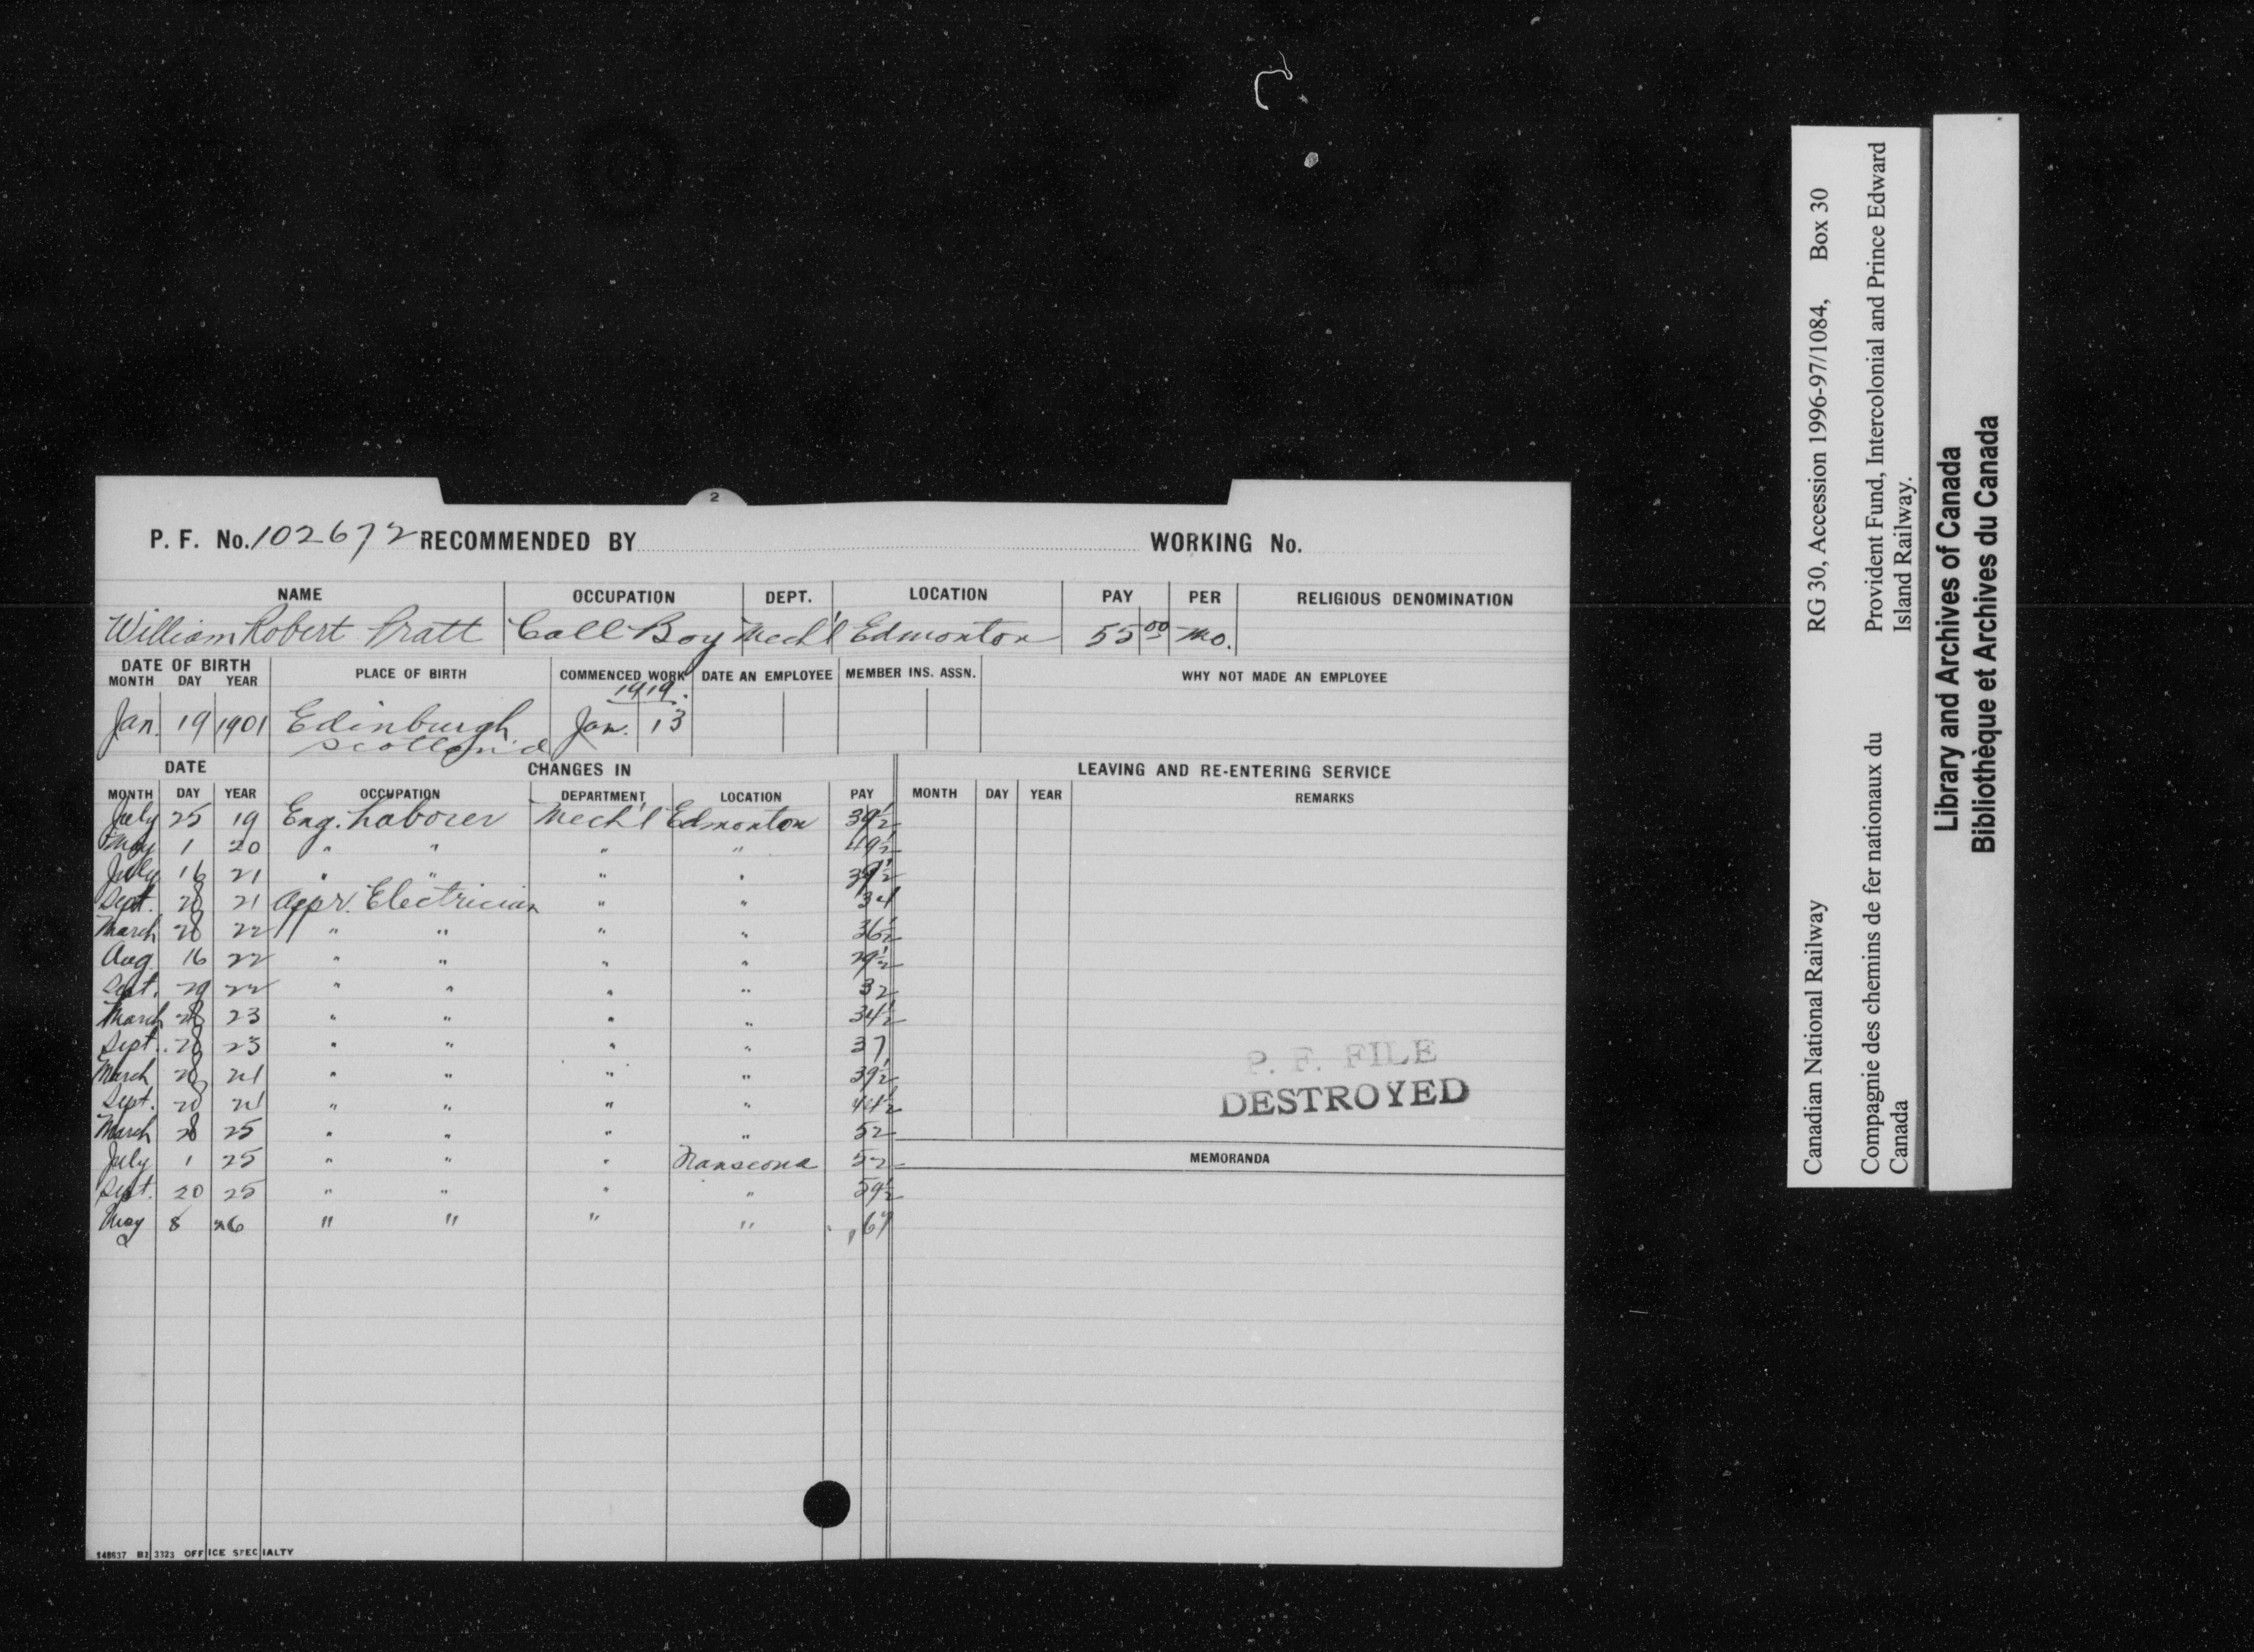 2
P. F. No. 102672 RECOMMENDED BY WORKING No.
NAME OCCUPATION DEPT. LOCATION PAY PER RELIGIOUS DENOMINATION
William Robert Pratt Call Boy Mech'l Edmonton 55 00 Mo.
DATE OF BIRTH PLACE OF BIRTH COMMENCED WORK DATE AN EMPLOYEE MEMBER INS. ASSN. WHY NOT MADE AN EMPLOYEE
MONTH DAY YEAR
1919.
Jan. 19 1901 Edinburgh Jan. 13
Scotland
DATE CHANGES IN LEAVING AND RE-ENTERING SERVICE
MONTH DAY YEAR OCCUPATION DEPARTMENT LOCATION PAY MONTH DAY YEAR REMARKS
July 25 19 Eng. Laborer Mech'l Edmonton 39½
May 1 20 " " " " 49½
July 16 21 " " " " 39½
Sept. 28 21 Appr. Electrician " " 34
March 28 22 " " " " 36½
Aug. 16 22 " " " " 29½
Sept. 29 22 " " " " 32
March 28 23 " " " " 34½
Sept. 28 23 " " " " 37
March 28 24 " " " " 39½
Sept. 28 24 " " " " 44½
March 28 25 " " " " 52
July 1 25 " " " Transcona 52
Sept. 20 25 " " " " 59½
May 8 26 " " " " 67
P. F. FILE
DESTROYED
MEMORANDA
148637 B2 3323 OFFICE SPECIALTY
Canadian National Railway RG 30, Accession 1996-97/1084, Box 30
Compagnie des chemins de fer nationaux du Provident Fund, Intercolonial and Prince Edward
Canada Island Railway.
Library and Archives of Canada
Bibliothèque et Archives du Canada